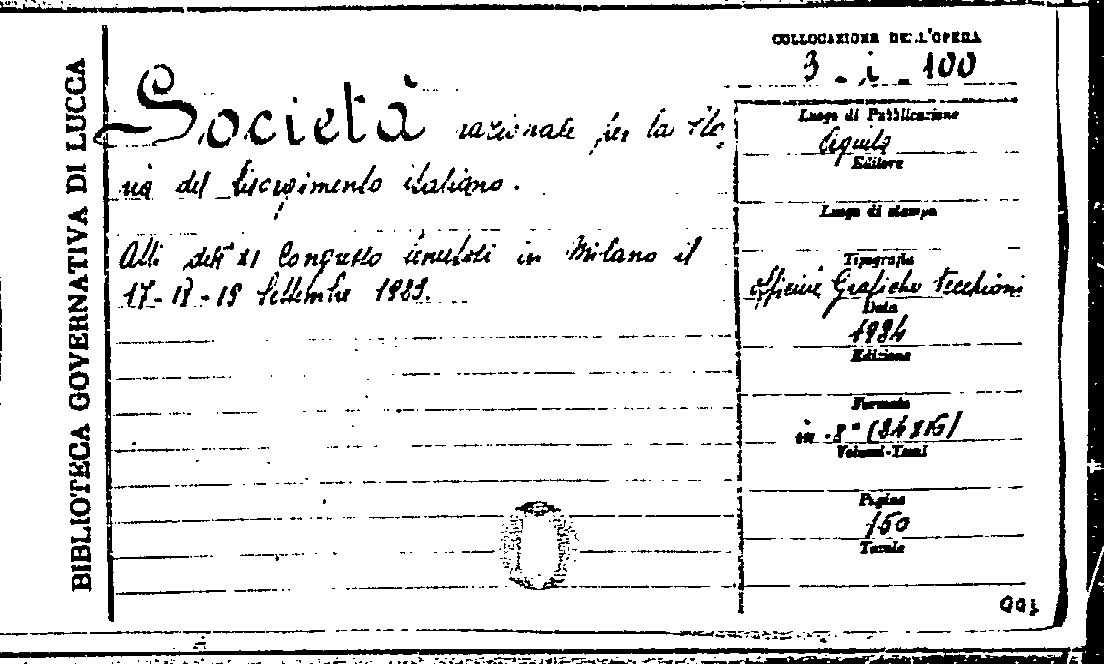 BIBLIOTECA GOVERNATIVA DI LUCCA
COLLOCAZIONE DELL'OPERA
3 - i - 100
Società nazionale per la sto
ria del risorgimento italiano.
Atti dell' XI Congresso tenutosi in Milano il
17-18-19 Settembre 1923.
Luogo di Pubblicazione
Aquila
Editore
Luogo di stampa
Tipografia
Officine Grafiche Vecchioni
Data
1924
Edizione
Formato
in-8° (24x16)
Volumi-Tomi
Pagine
150
Tavole